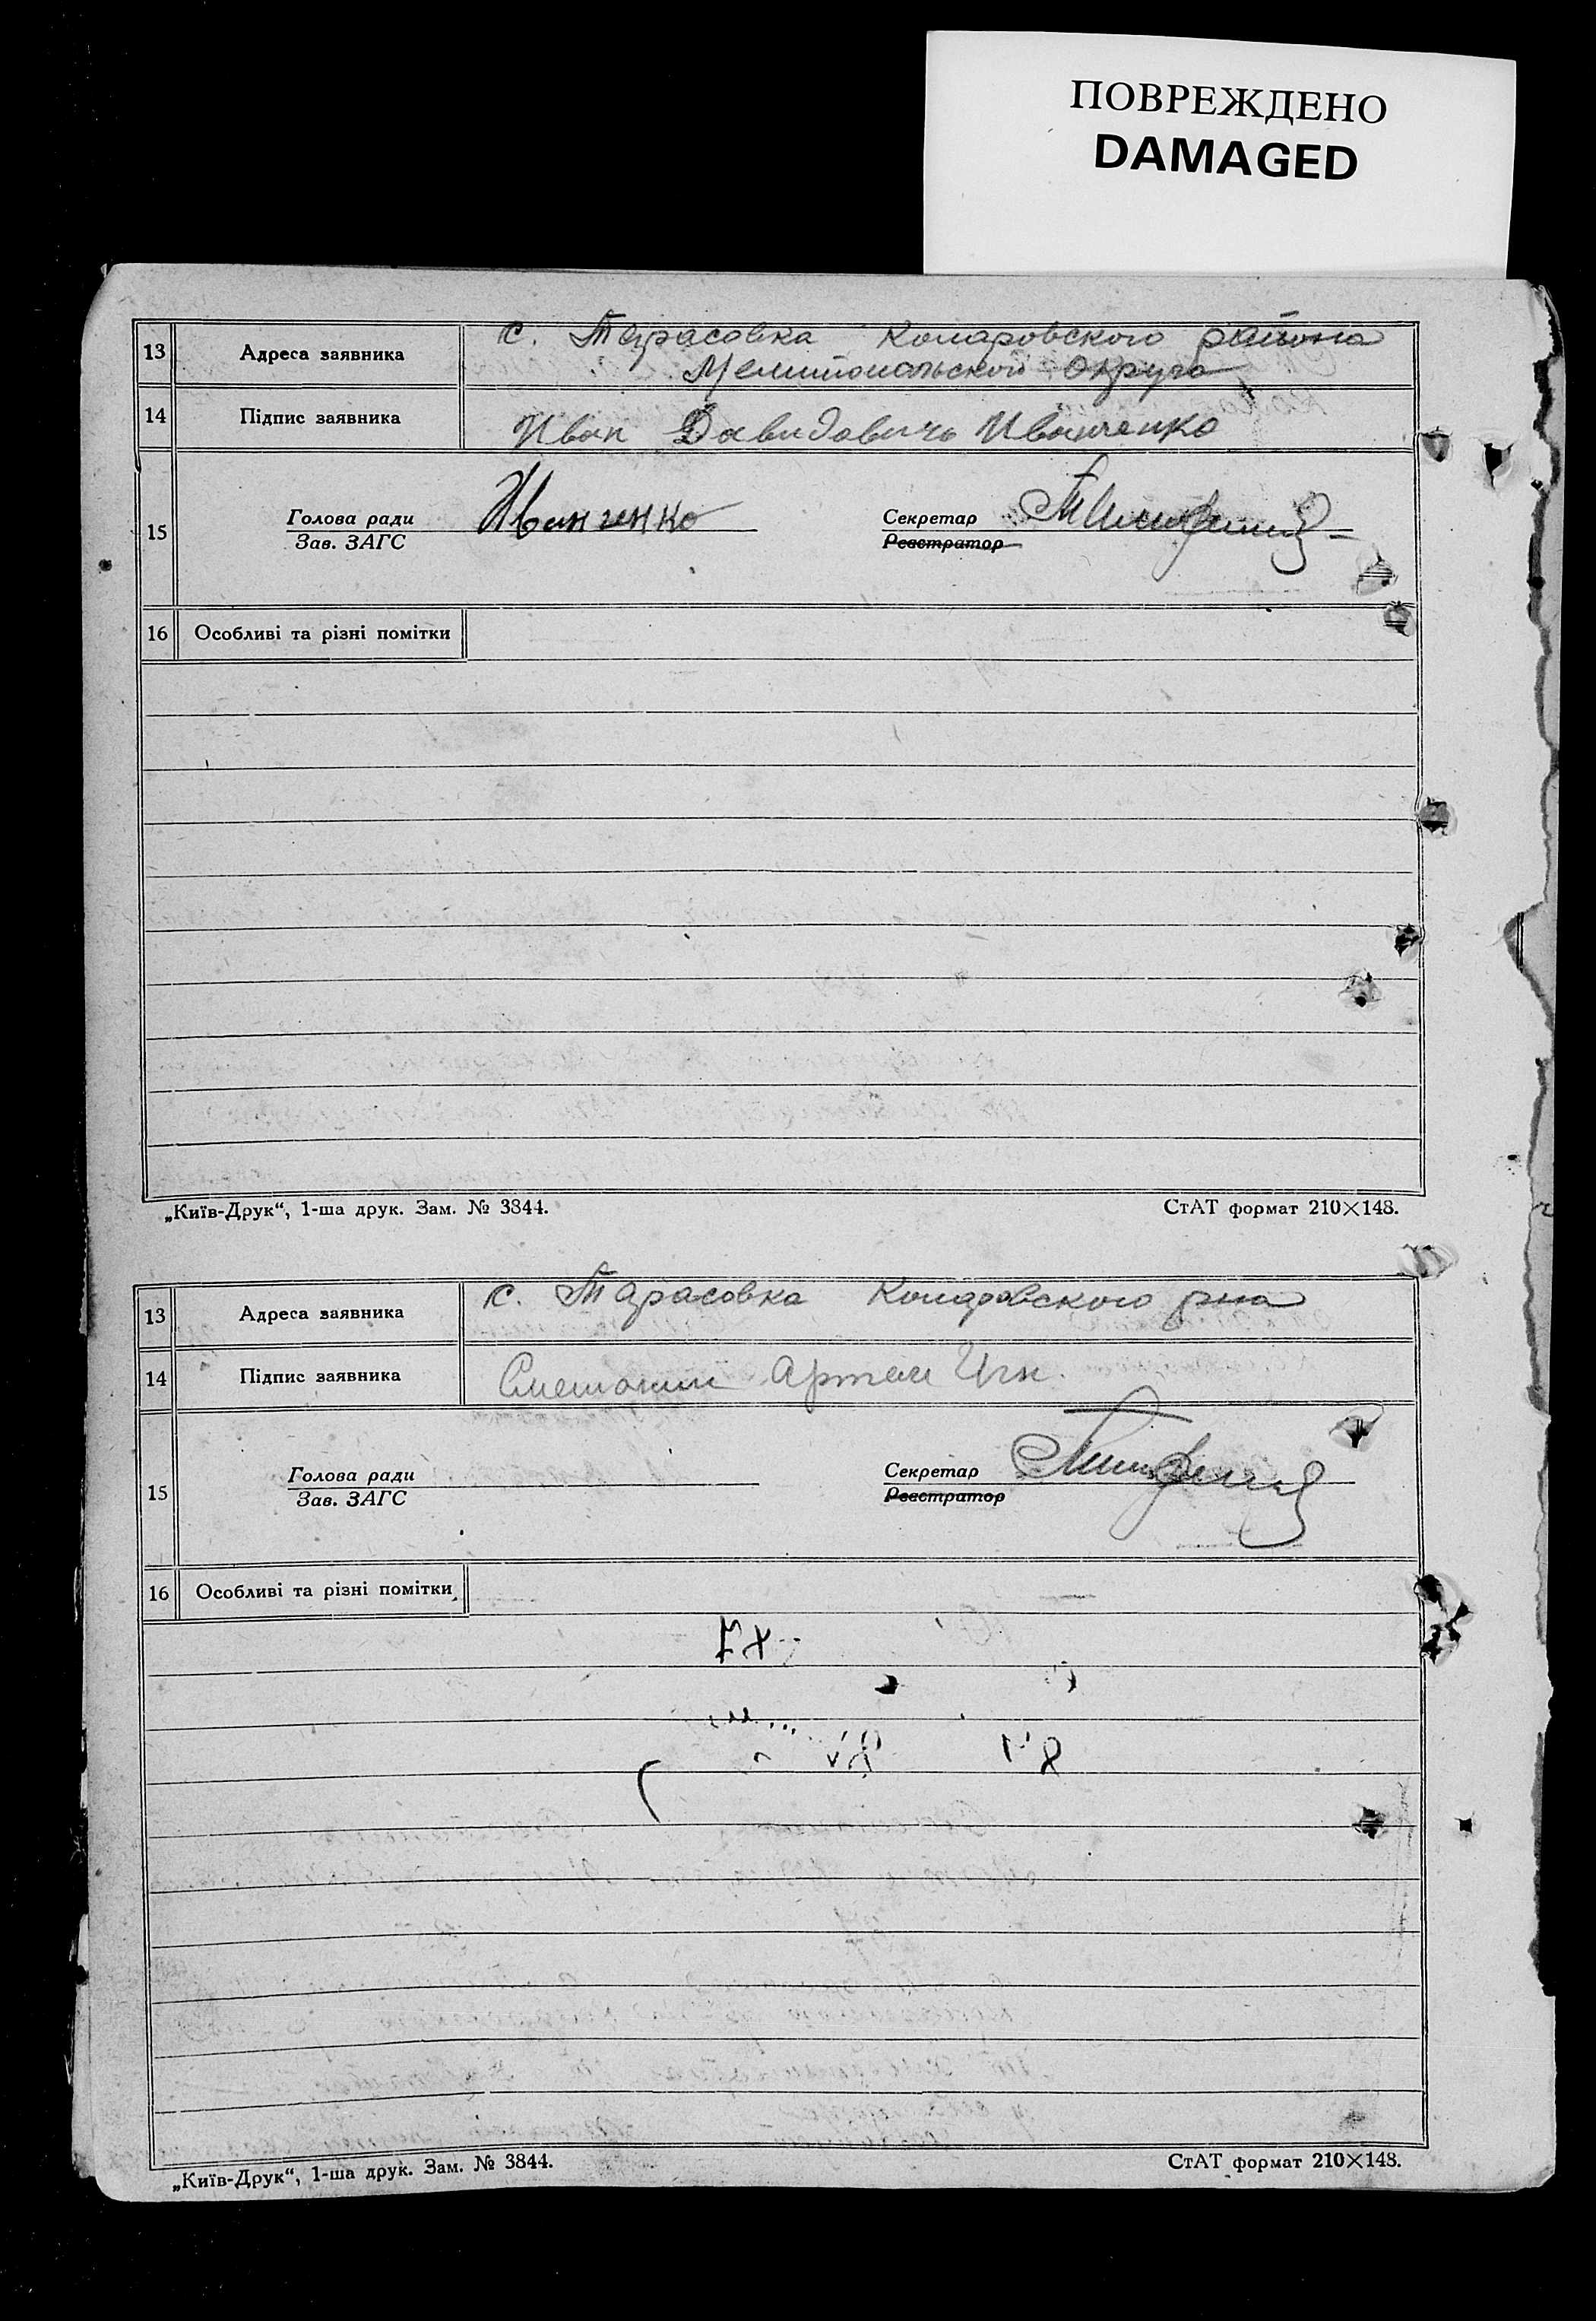 ПОВРЕЖДЕНО
DAMAGED
13 Адреса заявника с. Тарасовка Комаровского района
Мелитопольского Округа
14 Підпис заявника Иван Давидовичь Иванченко
15 Голова ради Иванченко Секретар
Зав. ЗАГС Реєстратор
16 Особливі та різні помітки
„Київ-Друк“, 1-ша друк. Зам. № 3844. СтАТ формат 210×148.
13 Адреса заявника с. Тарасовка Комаровского рна
14 Підпис заявника Артем Игн.
15 Голова ради Секретар
Зав. ЗАГС Реєстратор
16 Особливі та різні помітки
„Київ-Друк“, 1-ша друк. Зам. № 3844. СтАТ формат 210×148.